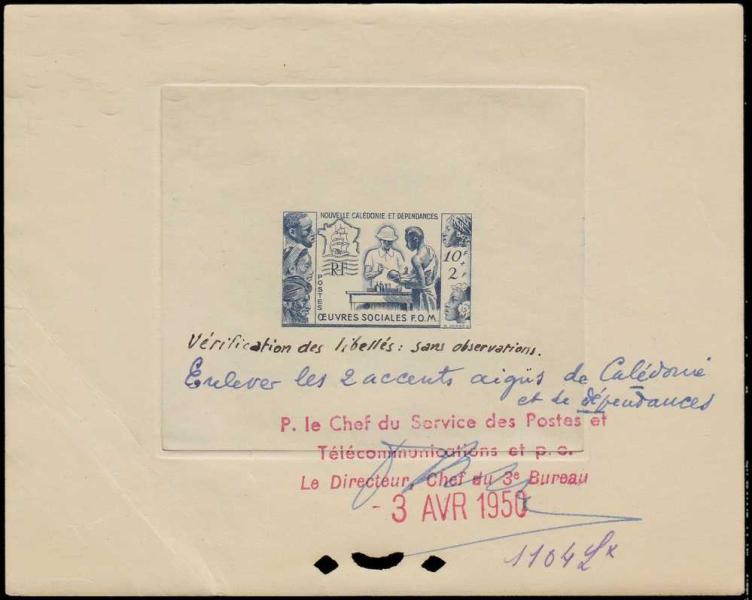 NOUVELLE CALÉDONIE ET DÉPENDANCES
10F
+
2F
RF
POSTES
ŒUVRES SOCIALES F.O.M.
Vérification des libellés : sans observations.
Enlever les 2 accents aigüs de Calédonie
et de dépendances
P. le Chef du Service des Postes et
Télécommunications et p. o.
Le Directeur, Chef du 3e Bureau
- 3 AVR 1950
1104 Lx